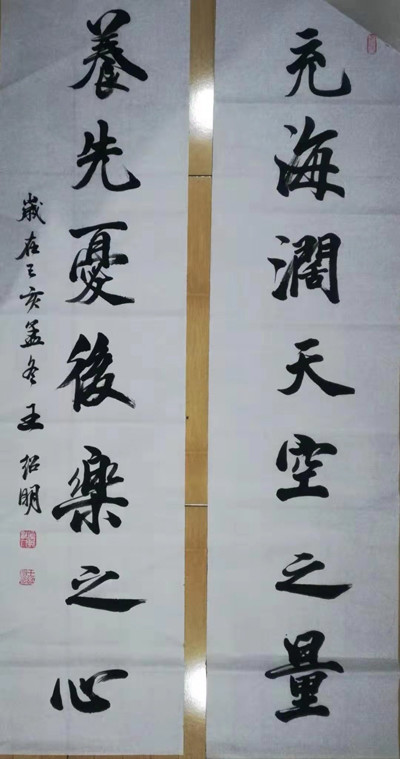 充海濶天空之量
養先憂後樂之心
歲在己亥孟冬王紹明